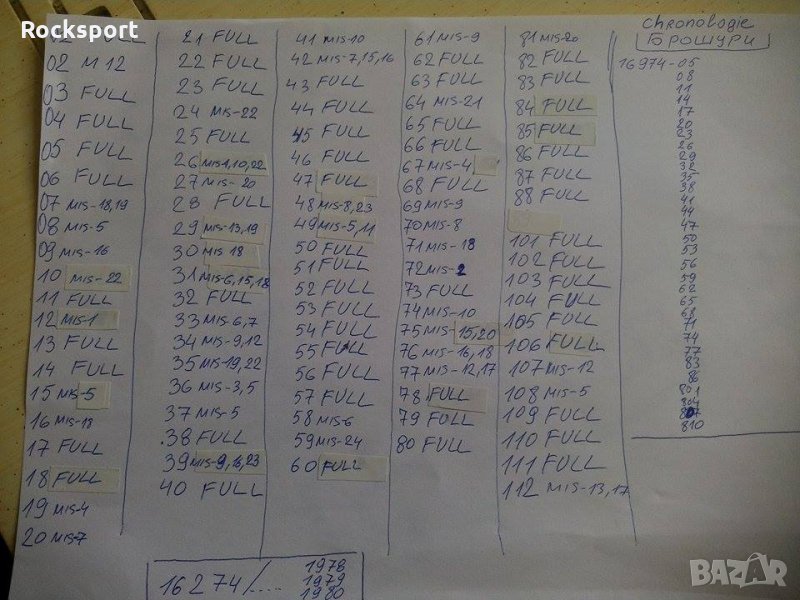 Rocksport
FULL
02 M 12
03 FULL
04 FULL
05 FULL
06 FULL
07 MIS-18,19
08 MIS-5
09 MIS-16
10 MIS-22
11 FULL
12 MIS-1
13 FULL
14 FULL
15 MIS-5
16 MIS-13
17 FULL
18 FULL
19 MIS-4
20 MIS-7
21 FULL
22 FULL
23 FULL
24 MIS-22
25 FULL
26 MIS-1,10,22
27 MIS-20
28 FULL
29 MIS-13,19
30 MIS 18
31 MIS-6,15,18
32 FULL
33 MIS-6,7
34 MIS-9,12
35 MIS-19,22
36 MIS-3,5
37 MIS-5
38 FULL
39 MIS-9,16,23
40 FULL
41 MIS-10
42 MIS-7,15,16
43 FULL
44 FULL
45 FULL
46 FULL
47 FULL
48 MIS-8,23
49 MIS-5,11
50 FULL
51 FULL
52 FULL
53 FULL
54 FULL
55 FULL
56 FULL
57 FULL
58 MIS-6
59 MIS-24
60 FULL
61 MIS-9
62 FULL
63 FULL
64 MIS-21
65 FULL
66 FULL
67 MIS-4
68 FULL
69 MIS-9
70 MIS-8
71 MIS-18
72 MIS-2
73 FULL
74 MIS-10
75 MIS-15,20
76 MIS-16,18
77 MIS-12,17
78 FULL
79 FULL
80 FULL
81 MIS-20
82 FULL
83 FULL
84 FULL
85 FULL
86 FULL
87 FULL
88 FULL
101 FULL
102 FULL
103 FULL
104 FULL
105 FULL
106 FULL
107 MIS-12
108 MIS-5
109 FULL
110 FULL
111 FULL
112 MIS-13,17
chronologie
БРОШУРИ
16974-05
08
11
14
17
20
23
26
29
32
35
38
41
44
47
50
53
56
59
62
65
68
71
74
77
83
86
801
804
807
810
16274/.....
1978
1979
1980
BAZAR